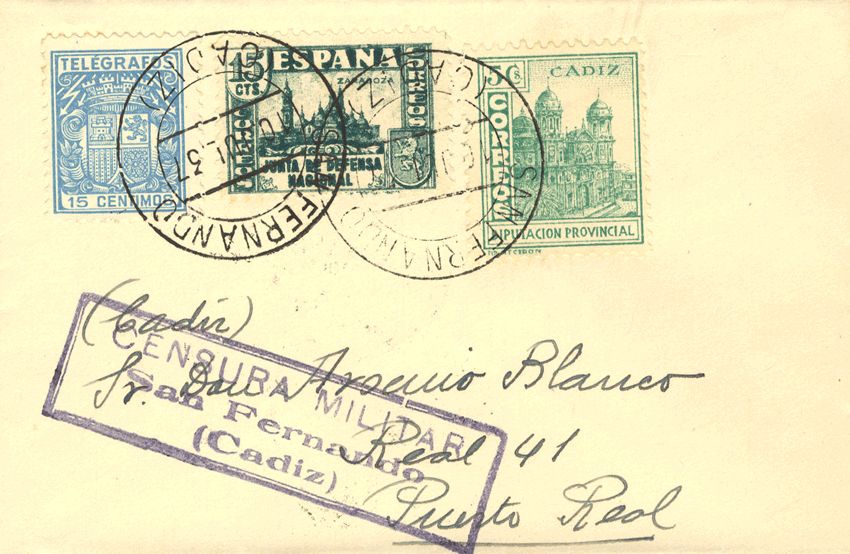 TELÉGRAFOS
15 CENTIMOS
ESPAÑA
15
CTS
ZARAGOZA
CORREOS
JUNTA DE DEFENSA
NACIONAL
5 Cs. CADIZ
CORREOS
DIPUTACION PROVINCIAL
(CADIZ)
JUL 37
SAN FERNANDO
(CADIZ)
SAN FERNANDO
(Cadiz)
Sr. Don Arsenio Blanco
Real 41
Puerto Real
CENSURA MILITAR
San Fernando
(Cadiz)